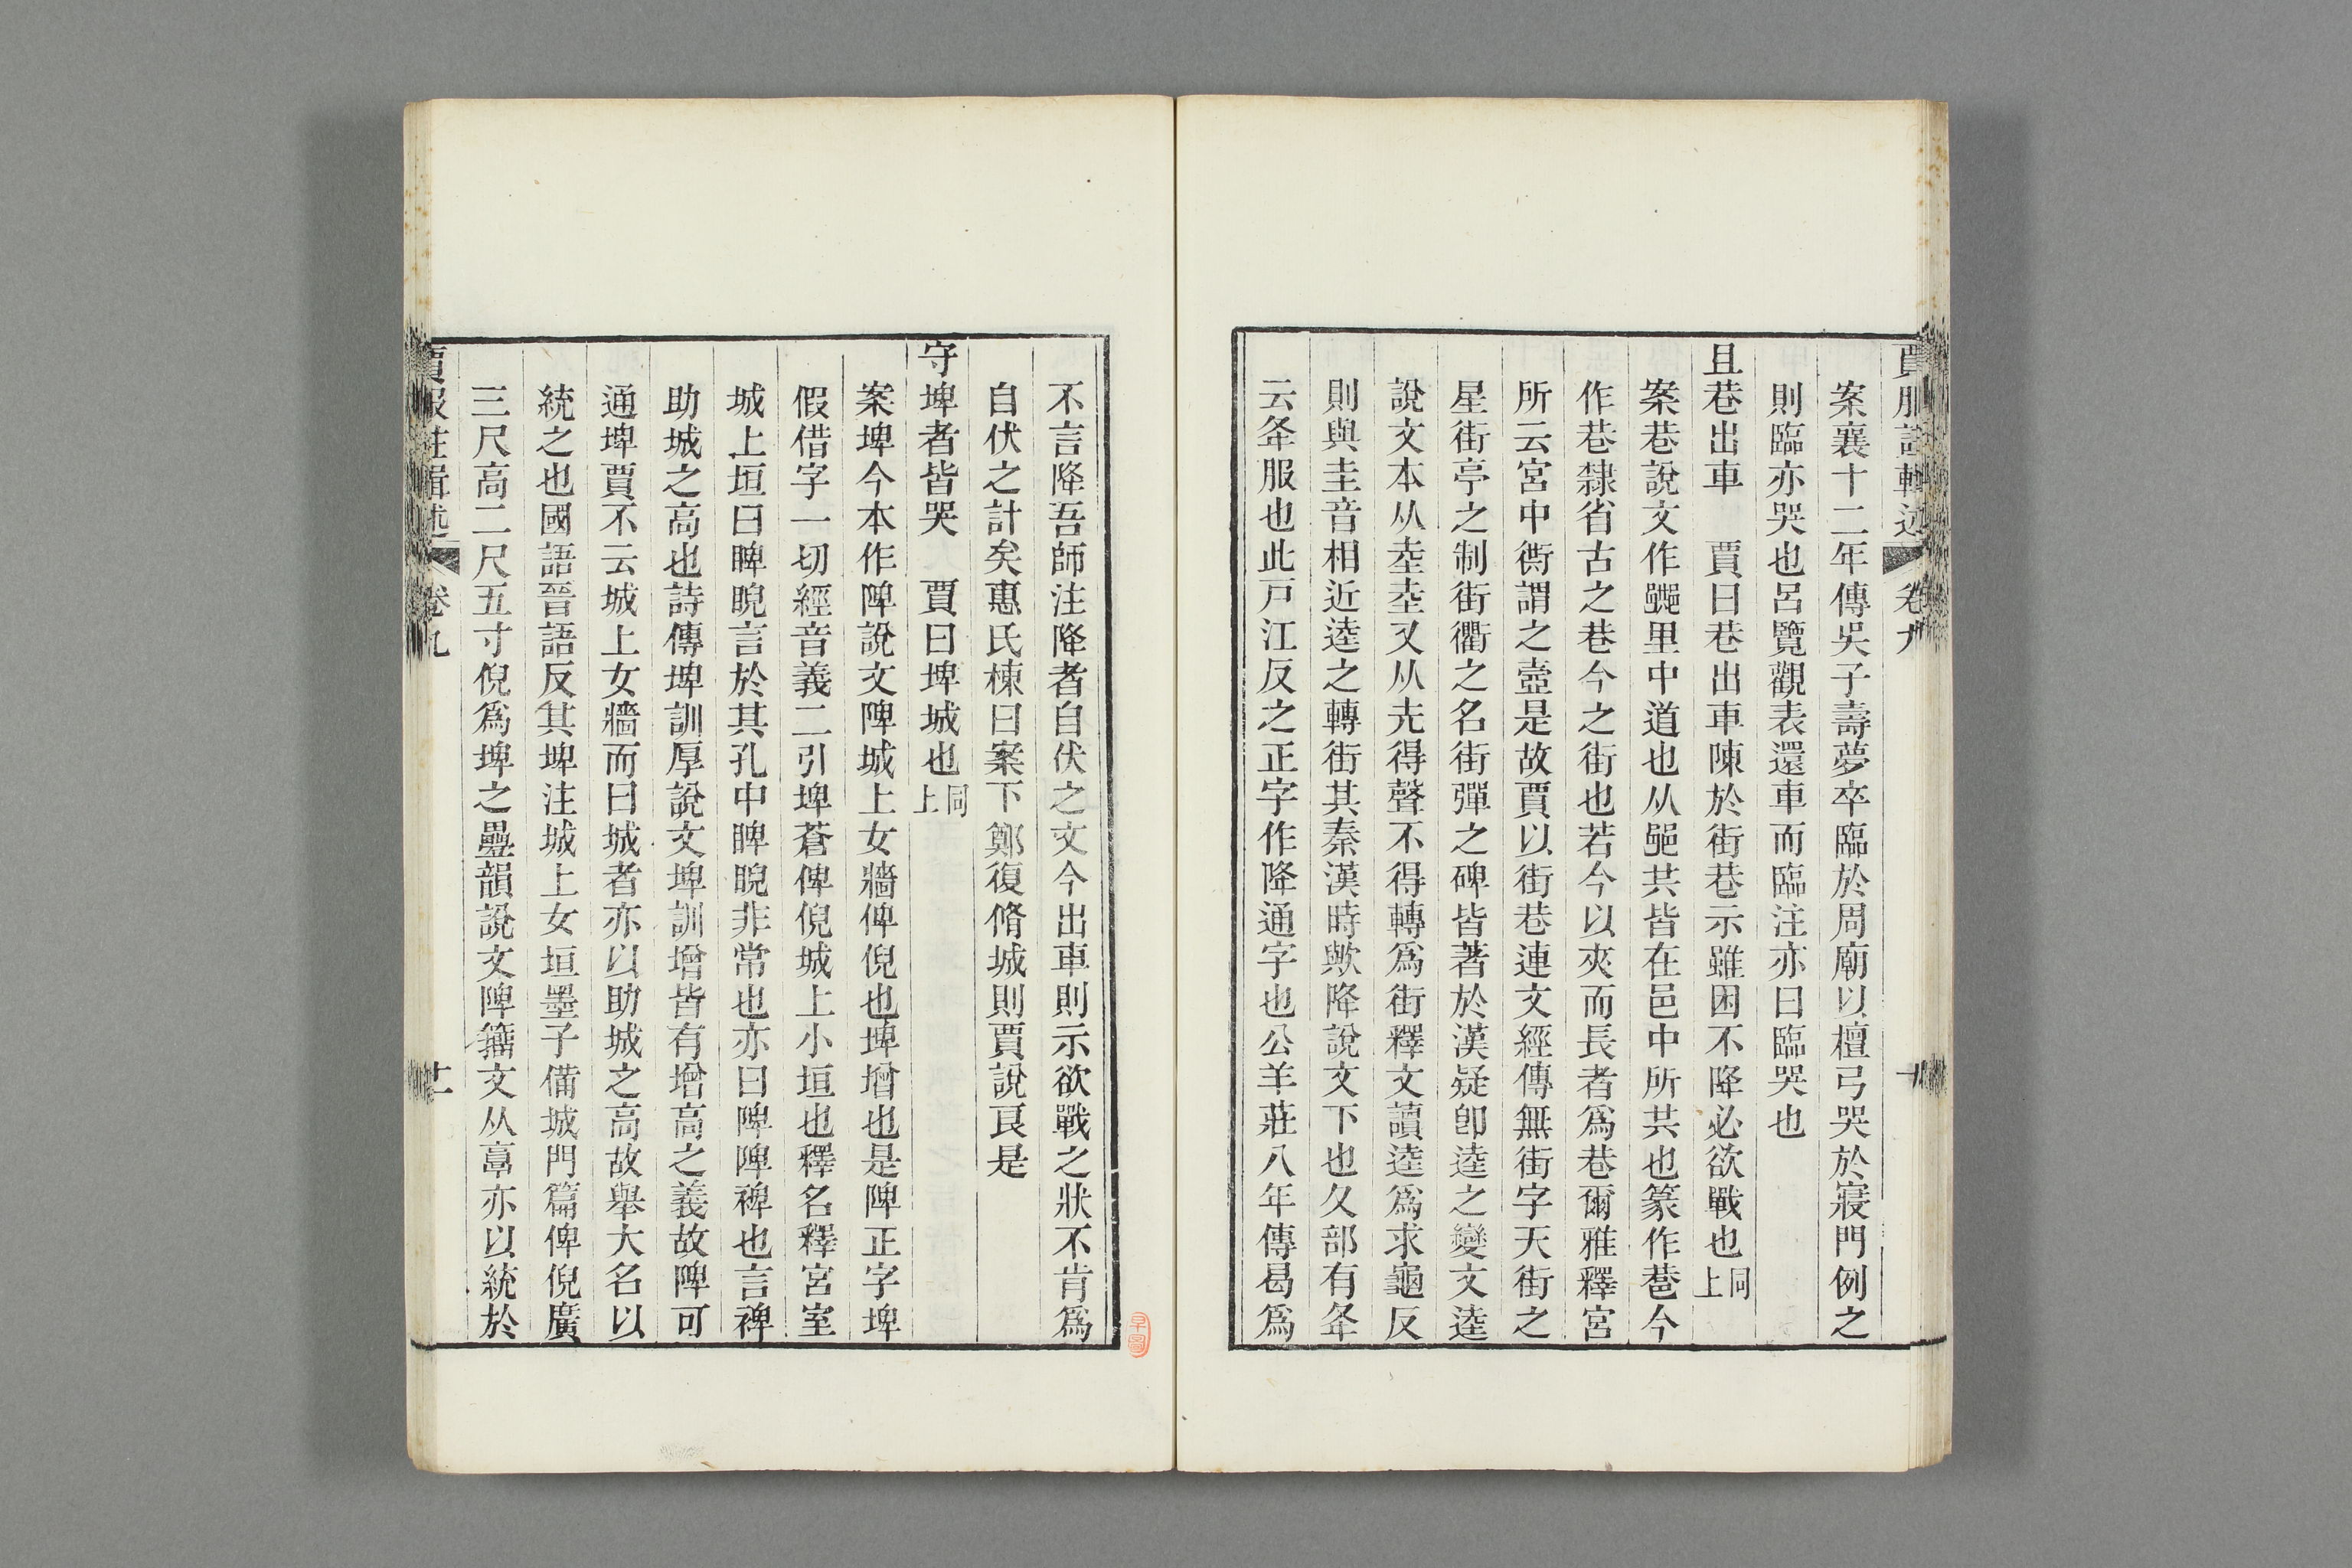 案襄十二年傳吳子壽夢卒臨於周廟以檀弓哭於寢門例之
則臨亦哭也呂覽觀表還車而臨注亦曰臨哭也
且巷出車　賈曰巷出車陳於街巷示雖困不降必欲戰也同上
案巷說文作𨞠里中道也从𨛜共皆在邑中所共也篆作巷今
作巷隸省古之巷今之街也若今以夾而長者爲巷爾雅釋宮
所云宮中衖謂之壼是故賈以街巷連文經傳無街字天街之
星街亭之制街衢之名街彈之碑皆著於漢疑卽逵之變文逵
說文本从坴坴又从圥得聲不得轉爲街釋文讀逵爲求龜反
則與圭音相近逵之轉街其秦漢時歟降說文下也夂部有夅
云夅服也此戸江反之正字作降通字也公羊莊八年傳曷爲
不言降吾師注降者自伏之文今出車則示欲戰之狀不肯爲
自伏之計矣惠氏棟曰案下鄭復脩城則賈說良是
守埤者皆哭　賈曰埤城也同上
案埤今本作陴說文陴城上女牆俾倪也埤增也是陴正字埤
假借字一切經音義二引埤蒼俾倪城上小垣也釋名釋宮室
城上垣曰睥睨言於其孔中睥睨非常也亦曰陴陴裨也言裨
助城之高也詩傳埤訓厚說文埤訓增皆有增高之義故陴可
通埤賈不云城上女牆而曰城者亦以助城之高故舉大名以
統之也國語晉語反其埤注城上女垣墨子備城門篇俾倪廣
三尺高二尺五寸倪爲埤之疊韻說文陴籒文从𩫖亦以統於
賈服注輯述　卷九